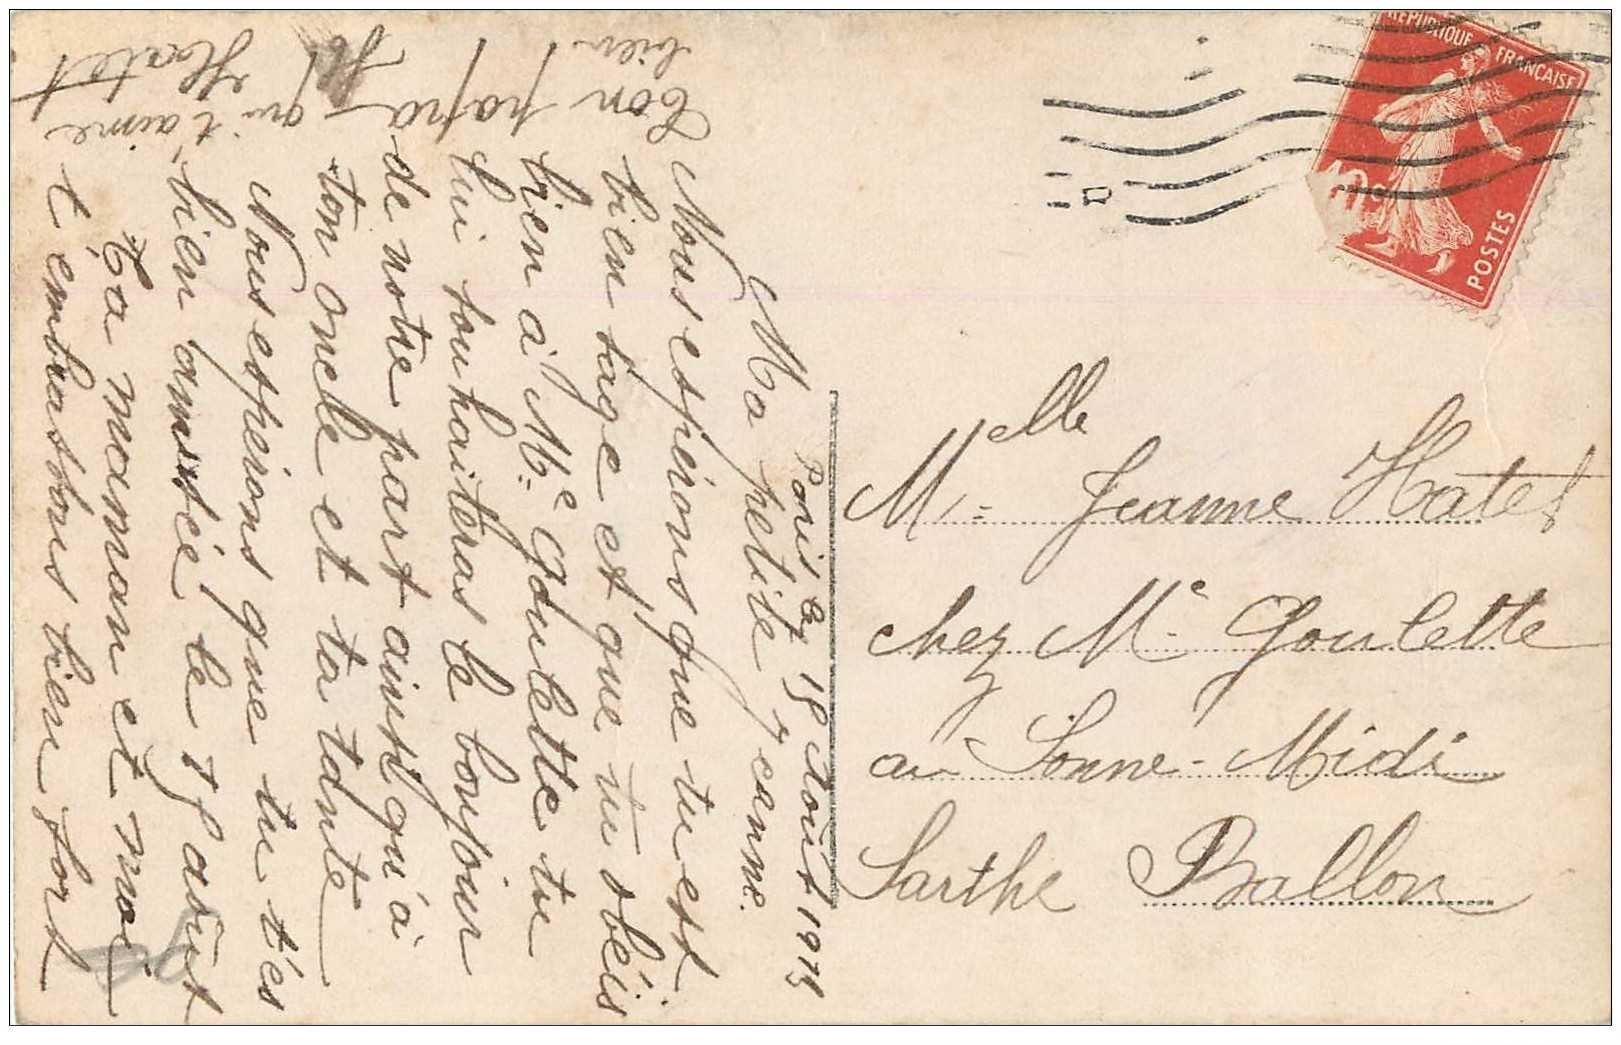 Paris le 18 Août 1915
Ma petite Jeanne.
Nous espérons que tu est
bien sage et que tu obéis
bien à Me Goulette tu
lui souhaiteras le bonjour
de notre part ainsi qu'à
ton oncle et ta tante
Nous espérons que tu t'es
bien amusée le 15 août
Ta maman et moi
t'embrassons bien fort
Ton papa
qui t'aime
bien!
Hatet
Melle Jeanne Hatet
chez Me Goulette
au Sonne-Midi
Ballon
Sarthe
REPUBLIQUE FRANÇAISE
10c
POSTES